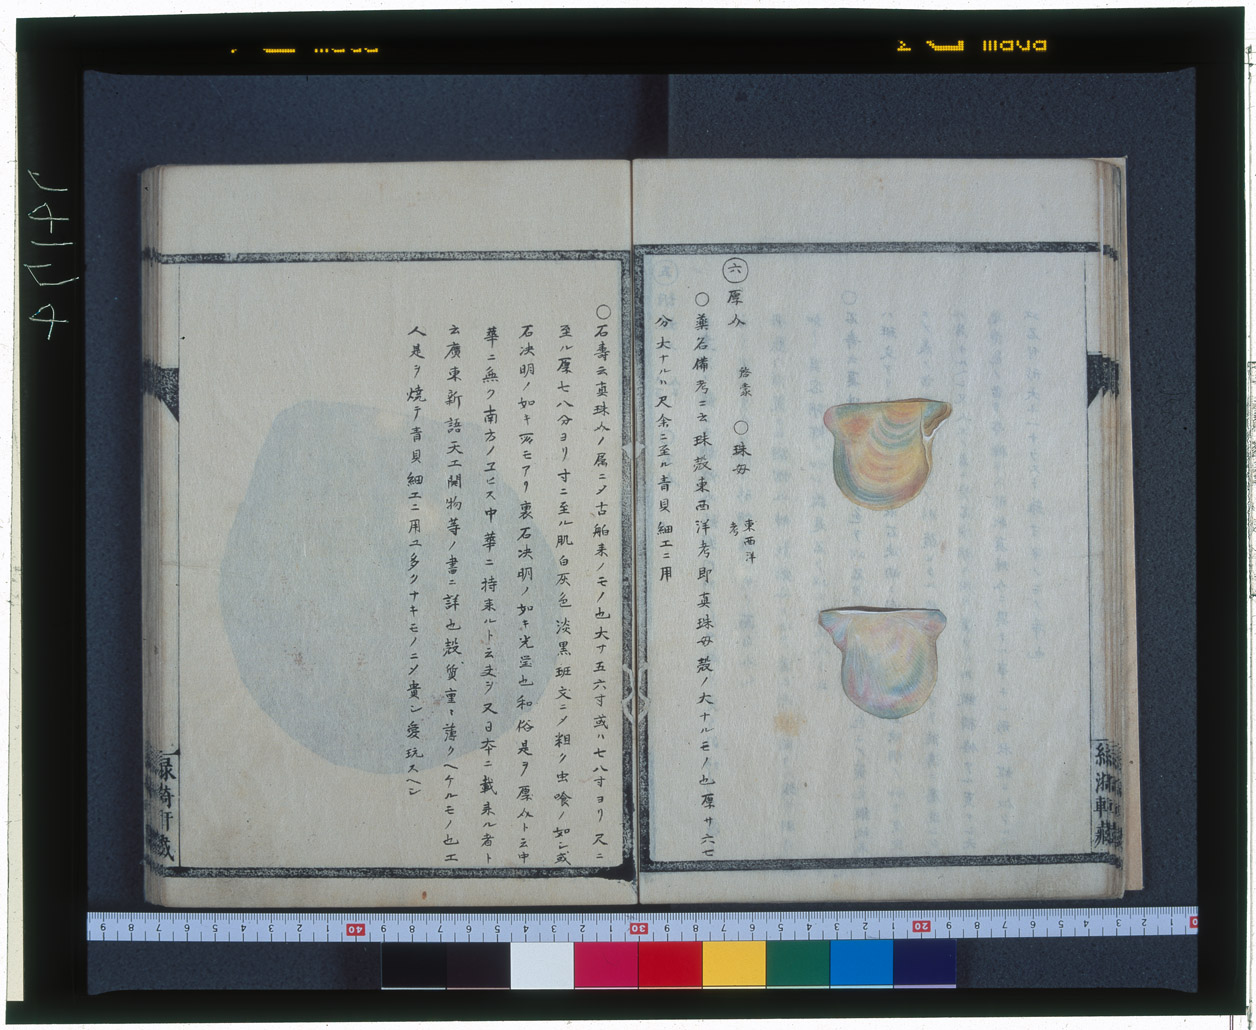 六 厚介 啓蒙 ○珠母 東西洋考
○藥石備考ニ云珠殻東西洋考即真珠母殻ノ大ナルモノ也厚サ六七
分大ナルハ尺余ニ至ル青貝細工ニ用
○石壽云真珠介ノ属ニメ古舶来ノモノ也大サ五六寸或ハ七八寸ヨリ尺ニ
至ル厚七八分ヨリ寸ニ至ル肌白灰色淡黒班文ニメ粗ク虫喰ノ如シ或
石决明ノ如キ モアリ裏石决明ノ如キ光 也和俗是ヲ厚介ト云中
華ニ無ク南方ノヱビス中華ニ持来ルト云 又日本ニ載来ル者ト
云廣東新語天工開物等ノ書ニ詳也殻質重ク薄クヘケルモノ也工
人是ヲ焼テ青貝細工ニ用ユ多クナキモノニメ貴ン愛玩スヘシ
緑漪軒蔵
緑漪軒蔵